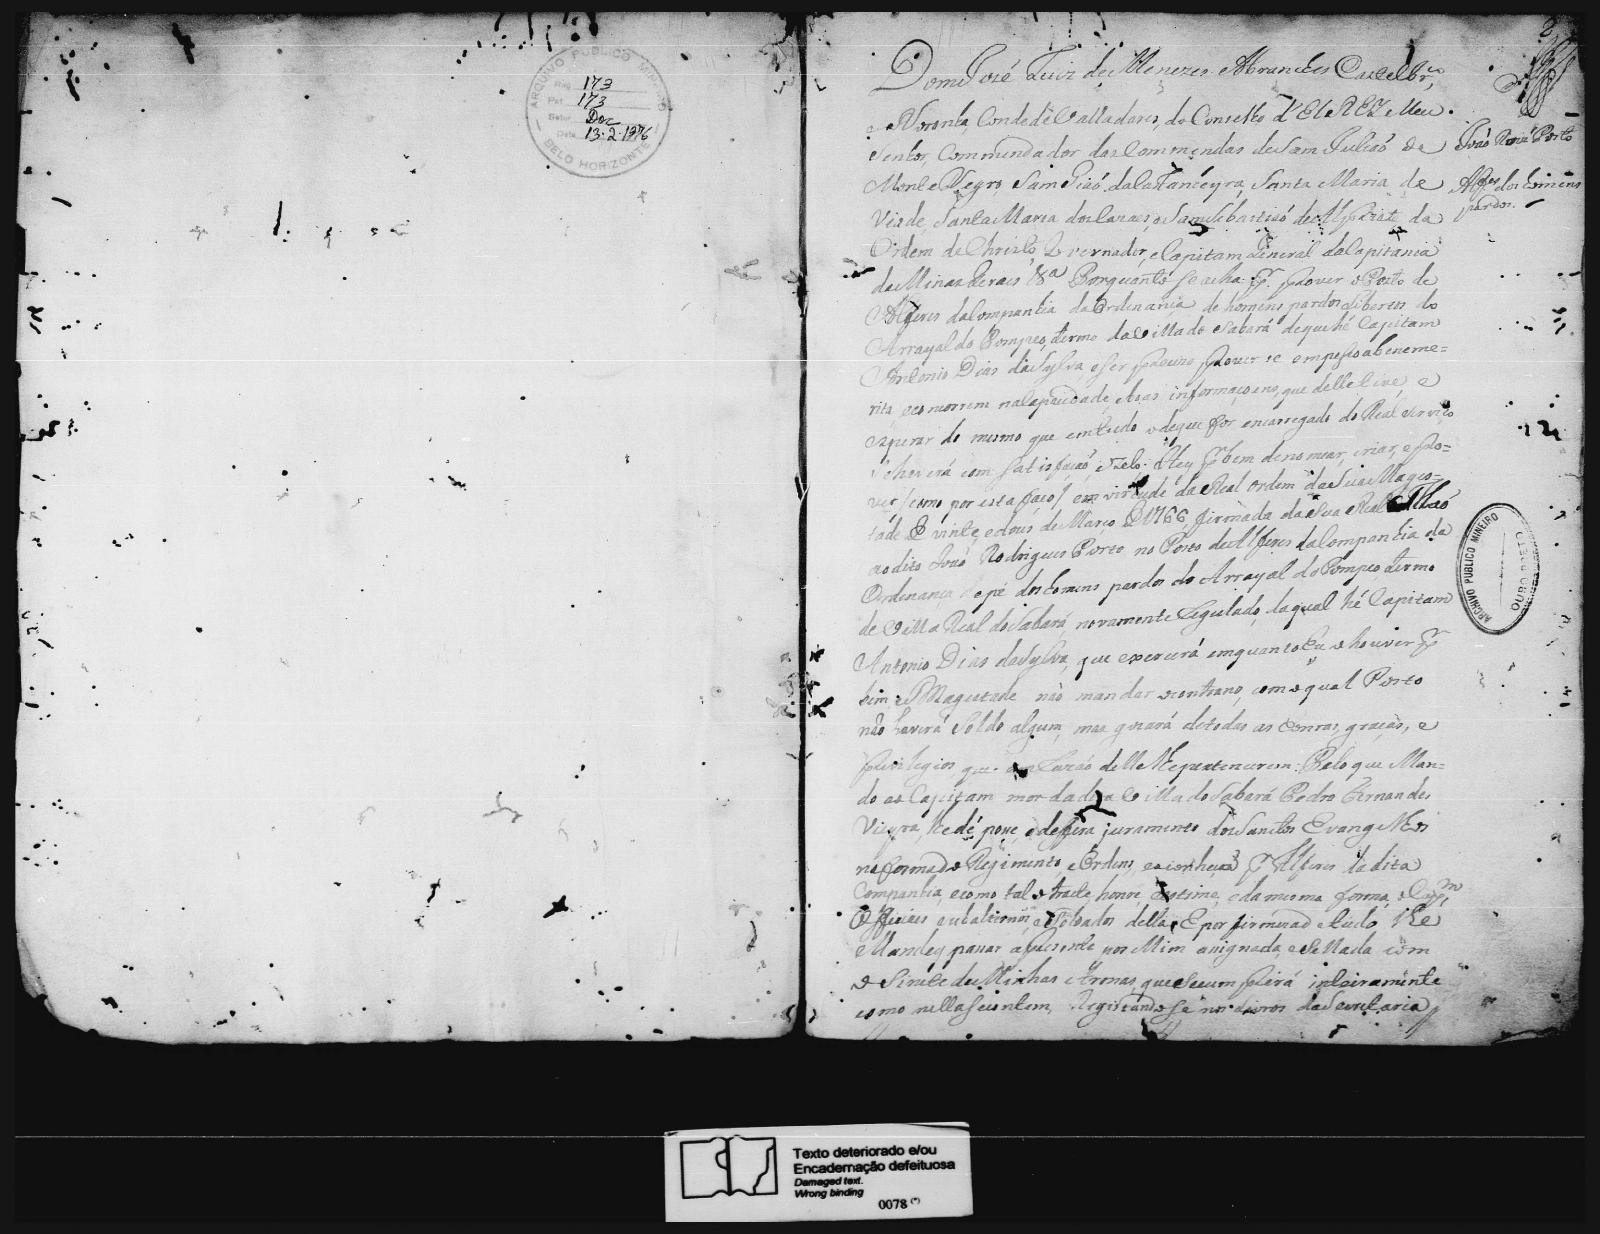 ARQUIVO PUBLICO MINEIRO
Reg. 173
Pat. 173
Setor Doc
Data 13-2-1976
BELO HORIZONTE
Dom José Luiz de Menezes Abranches Castelbr.co
e Noronha, Conde de Valladares, do Conselho d'ElREY Meu
Senhor, Commendador das Commendas de Sam Juliaó de
Monte Negro, Sam Santa Maria de
Viade, Santa Maria dos e Sam Sebastiaó de da
Ordem de Christo, Governador, e Capitam General da Capitania
de Minas Geraes &a Porquanto se acha p.r prover o Posto de
Alferes da Companhia da Ordenança de homens pardos Libertos do
Arrayal do Pompeo, termo da Villa do Sabará de que hé Capitam
Antonio Dias da Sylva e ser prover se em pessoa beneme=
rita e concorrem na capacidade, e boas informaçoens, que delle tive, e
esperar do mesmo que em tudo o de que for encarregado do Real serviço
se haverá com satisfaçaó, e zelo. Hey p.r bem de nomear, criar, e pro=
ver (como por esta faço) em virtude da Real ordem da Sua Mages=
tade de vinte e dous de Março de 1766, firmada da sua Real Maó
ao dito Joaó Rodrigues Porto no Posto de Alferes da Companhia da
Ordenança de pé dos homens pardos do Arrayal do Pompeo, termo
de Villa Real do Sabará, novamente Regulado, da qual hé Capitam
Antonio Dias da Sylva, que exercerá emquanto Eu o houver p.r
bem e S. Magestade não mandar o contrario, com o qual Posto
não haverá soldo algum, mas gozará de todas as honras, graças, e
previlegios que em razaó delle lhe pertencerem: Pelo que Man=
do ao Capitam mor da dita Villa do Sabará Pedro Fernandes
Vieyra, lhe dé posse, e defira juramento dos Santos Evangelhos
na forma do Regimento, e Ordens, e a conheça p.r Alferes da dita
Companhia, e como tal o trate, honre, e estime, e da mesma forma, o Cap.m
Officiaes subalternos, e Soldados della, E por firmeza de tudo, lhe
Mandey passar a prezente por Mim assignada, e Sellada com
o Sinete de Minhas Armas, que se cumprirá inteiramente
como nella se contem, Registando-se nos Livros da Secretaria
2
Joaó Roiz Porto
Alf.es dos homens
pardos.
ARCHIVO PUBLICO MINEIRO
OURO PRETO
Texto deteriorado e/ou
Encadernação defeituosa
Damaged text.
Wrong binding
0078 (*)